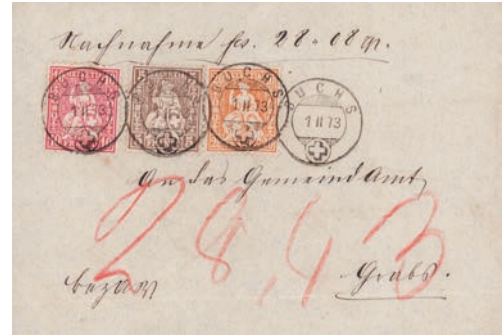 Nachnahme frs. 28.08 rp.
BUCHS
BUCHS
1 II 73
BUCHS
1 II 73
An das Gemeind Amt
28,43
Grabs.